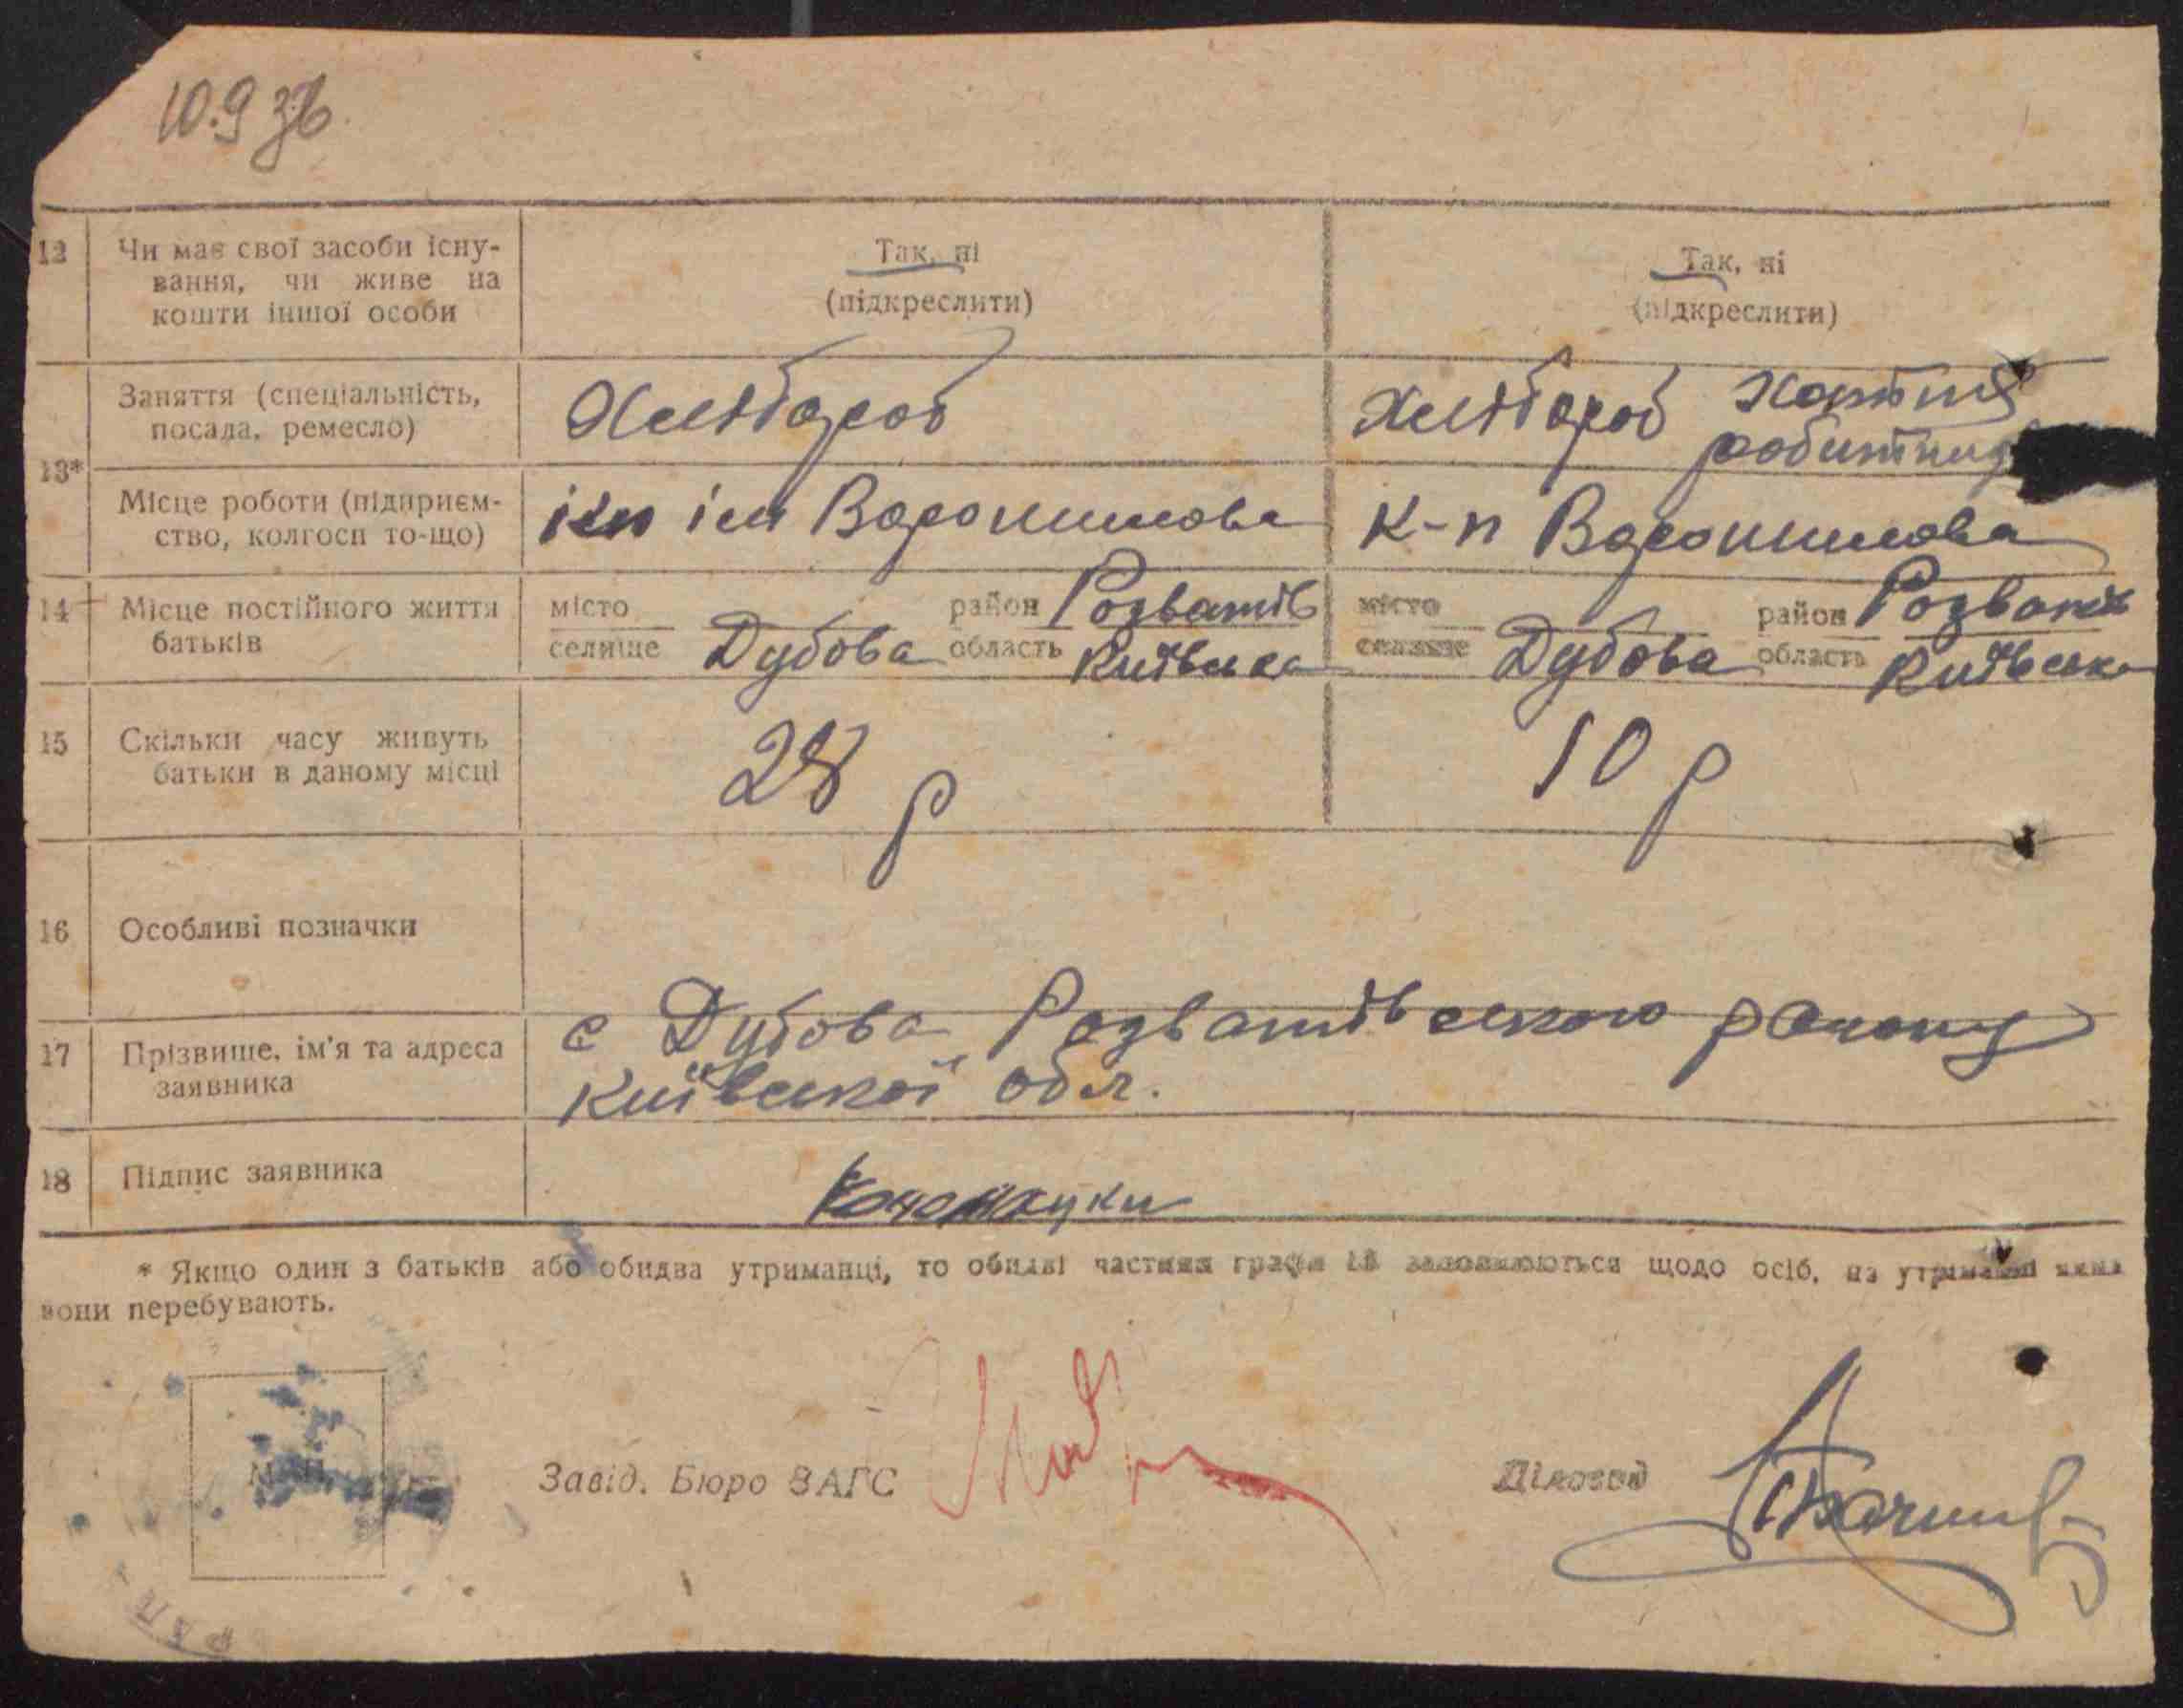 10.9 36
12 Чи має свої засоби існу- Так, ні Так, ні
вання, чи живе на (підкреслити) (підкреслити)
кошти іншої особи
13* Заняття (спеціальність, Хлібороб Хлібороб хатня
посада, ремесло) робітниця
Місце роботи (підприєм- ім Ворошилова к-п Ворошилова
ство, колгосп то-що)
14 Місце постійного життя місто район Розважів місто район Розважів
батьків селище Дубова область Київська селище Дубова область Київська
15 Скільки часу живуть 28 р 10 р
батьки в даному місці
16 Особливі позначки
с Дубова Розважівського району
17 Прізвище, ім'я та адреса
заявника Київської обл.
18 Підпис заявника
* Якщо один з батьків або обидва утриманці, то обидві частини графи 13 заповнюються щодо осіб, на утриманні яких
вони перебувають.
М. П.
Завід. Бюро ЗАГС Діловод